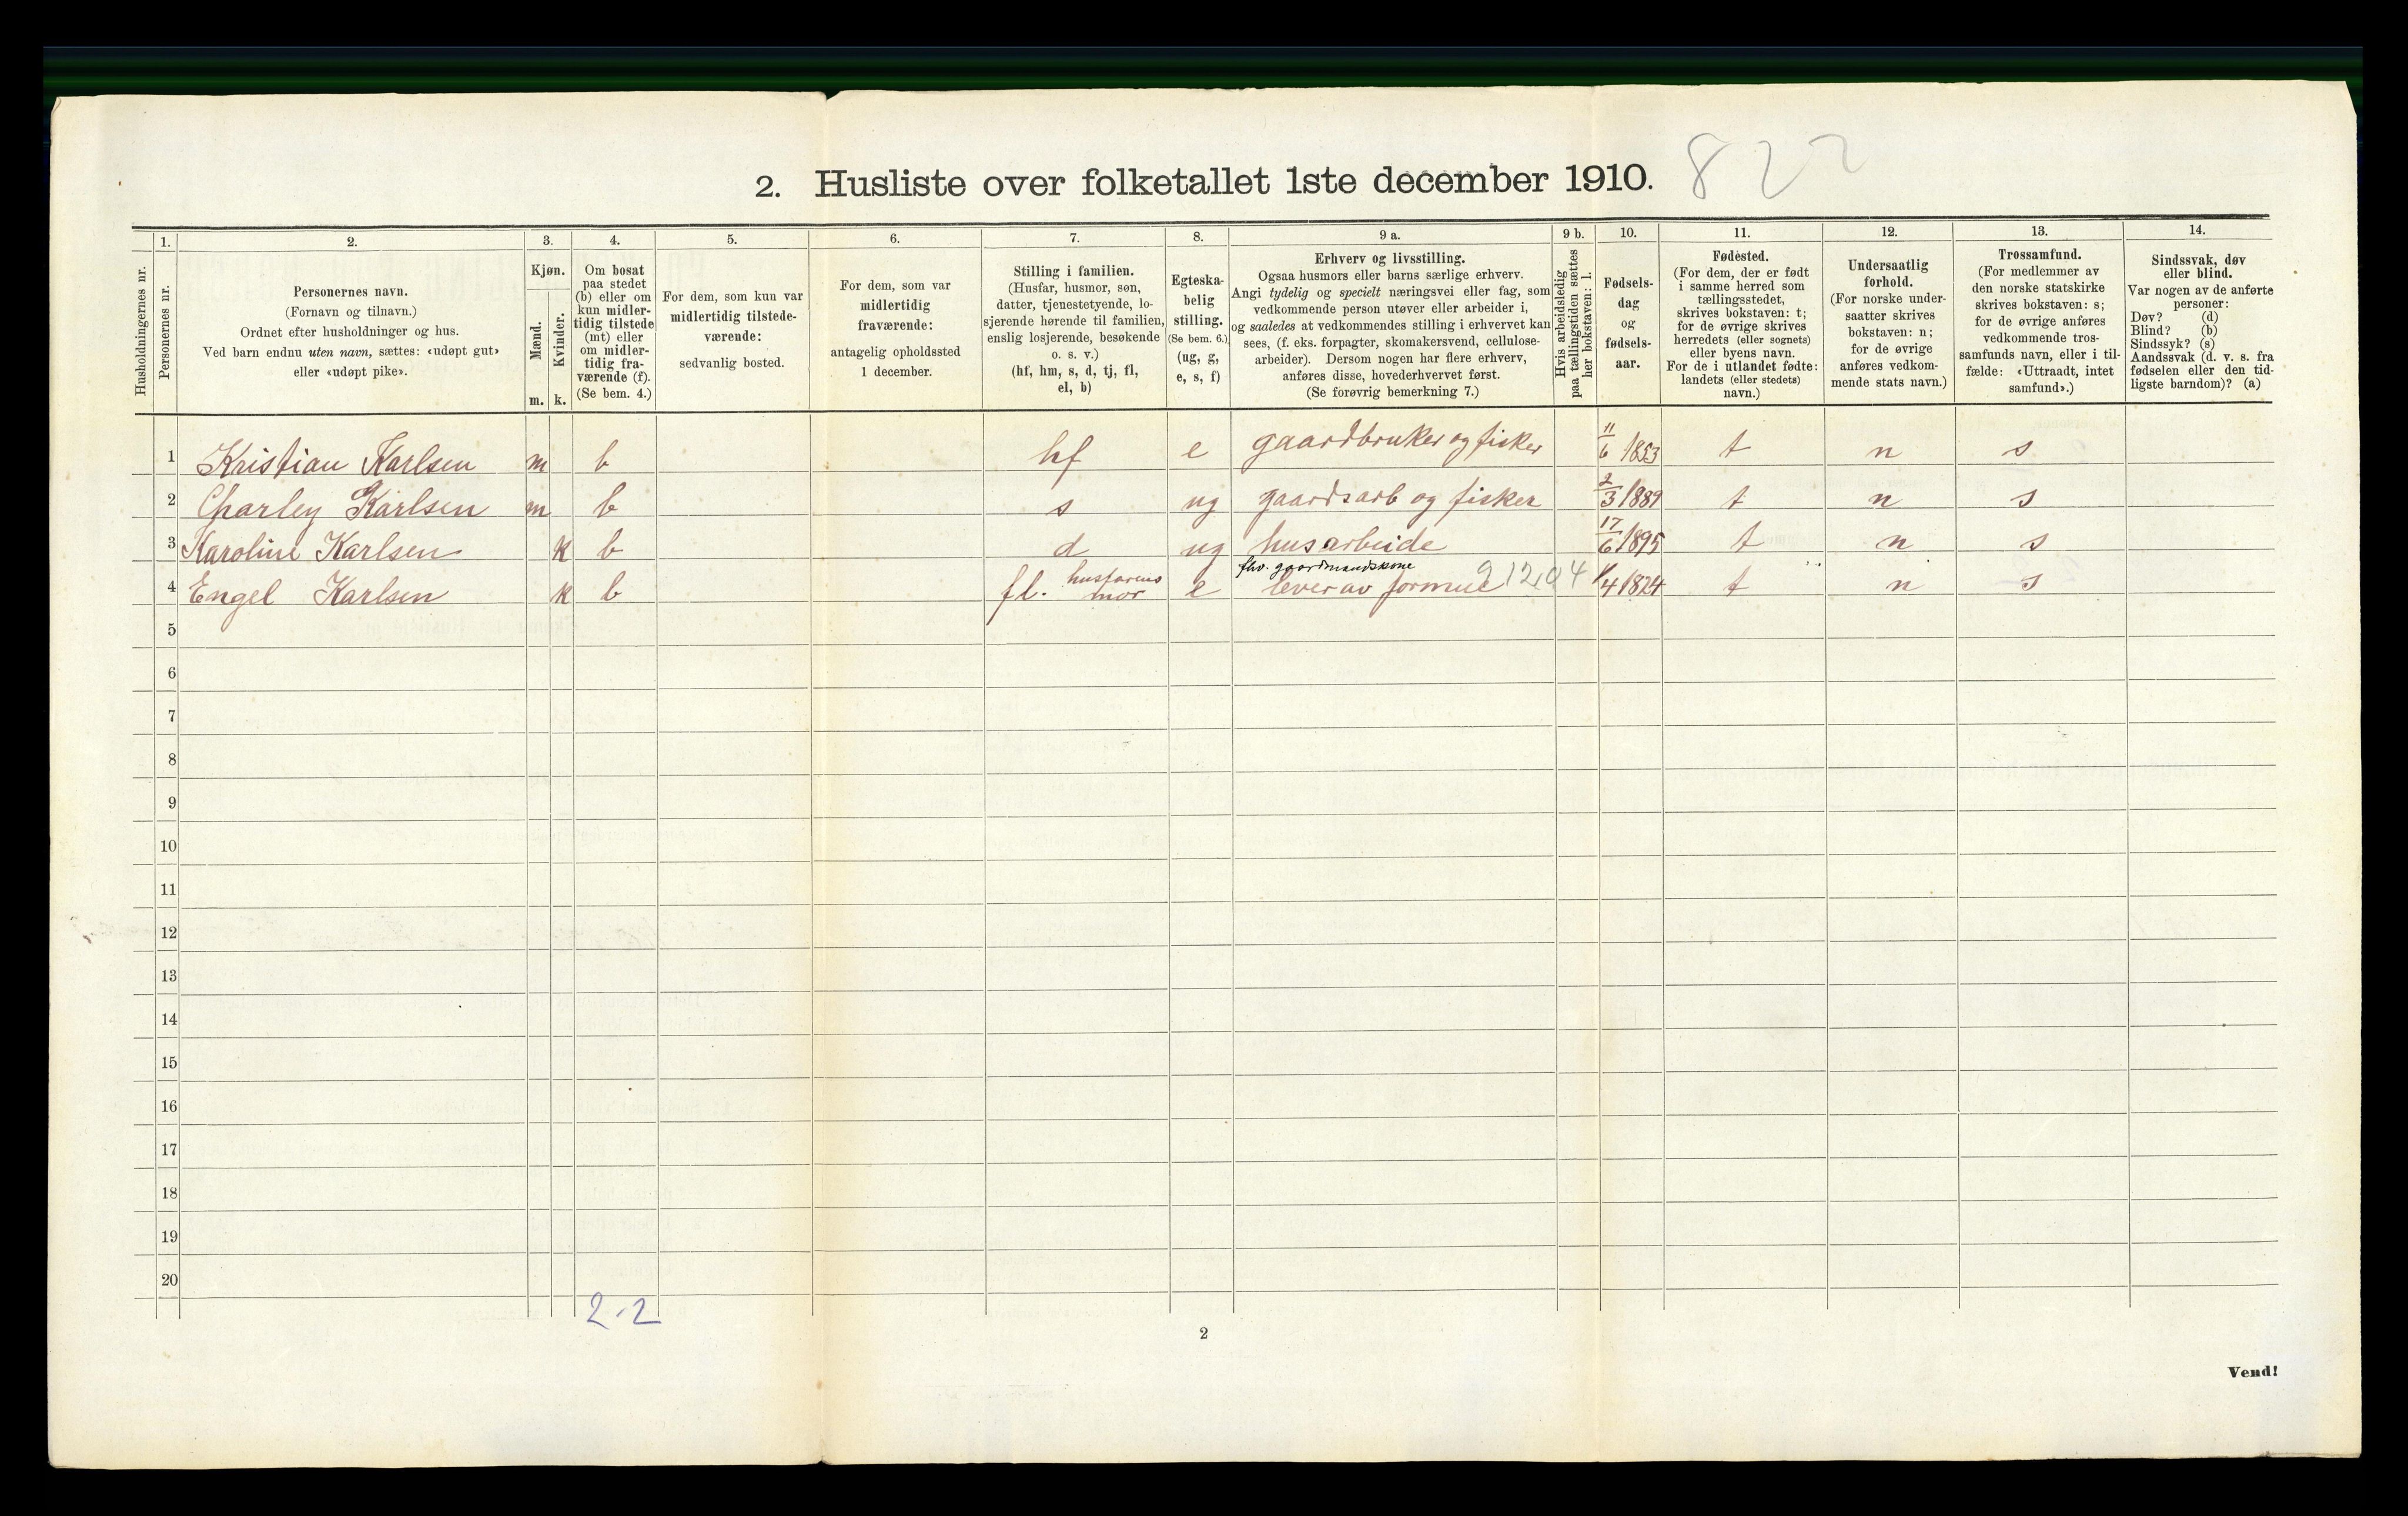 2. Husliste over folketallet 1ste december 1910. 822
Husholdningernes nr.
1.
Personernes nr.
2.
Personernes navn.
(Fornavn og tilnavn.)
Ordnet efter husholdninger og hus.
Ved barn endnu uten navn, sættes: «udøpt gut»
eller «udøpt pike».
3.
Kjøn.
Mænd.
Kvinder.
m. k.
4.
Om bosat
paa stedet
(b) eller om
kun midler-
tidig tilstede
(mt) eller
om midler-
tidig fra-
værende (f).
(Se bem. 4.)
5.
For dem, som kun var
midlertidig tilstede-
værende:
sedvanlig bosted.
6.
For dem, som var
midlertidig
fraværende:
antagelig opholdssted
1 december.
7.
Stilling i familien.
(Husfar, husmor, søn,
datter, tjenestetyende, lo-
sjerende hørende til familien,
enslig losjerende, besøkende
o. s. v.)
(hf, hm, s, d, tj, fl,
el, b)
8.
Egteska-
belig
stilling.
(Se bem. 6.)
(ug, g,
e, s, f)
9 a.
Erhverv og livsstilling.
Ogsaa husmors eller barns særlige erhverv.
Angi tydelig og specielt næringsvei eller fag, som
vedkommende person utøver eller arbeider i,
og saaledes at vedkommendes stilling i erhvervet kan
sees, (f. eks. forpagter, skomakersvend, cellulose-
arbeider). Dersom nogen har flere erhverv,
anføres disse, hovederhvervet først.
(Se forøvrig bemerkning 7.)
9 b.
Hvis arbeidsledig
paa tællingstiden sættes
her bokstaven: l.
10.
Fødsels-
dag
og
fødsels-
aar.
11.
Fødested.
(For dem, der er født
i samme herred som
tællingsstedet,
skrives bokstaven: t;
for de øvrige skrives
herredets (eller sognets)
eller byens navn.
For de i utlandet fødte:
landets (eller stedets)
navn.)
12.
Undersaatlig
forhold.
(For norske under-
saatter skrives
bokstaven: n;
for de øvrige
anføres vedkom-
mende stats navn.)
13.
Trossamfund.
(For medlemmer av
den norske statskirke
skrives bokstaven: s;
for de øvrige anføres
vedkommende tros-
samfunds navn, eller i til-
fælde: «Uttraadt, intet
samfund».)
14.
Sindssvak, døv
eller blind.
Var nogen av de anførte
personer:
Døv? (d)
Blind? (b)
Sindssyk? (s)
Aandssvak (d. v. s. fra
fødselen eller den tid-
ligste barndom)? (a)
1 Kristian Karlsen m b hf e gaardbruker og fisker 11/6 1853 t n s
2 Charley Karlsen m b s ug gaardsarb og fisker 2/3 1889 t n s
3 Karoline Karlsen k b d ug husarbeide 17/6 1895 t n s
4 Engel Karlsen k b fl. husfarens mor e fhv. gaardmandskone lever av formue 91204 1/4 1824 t n s
5
6
7
8
9
10
11
12
13
14
15
16
17
18
19
20
2-2
2
Vend!